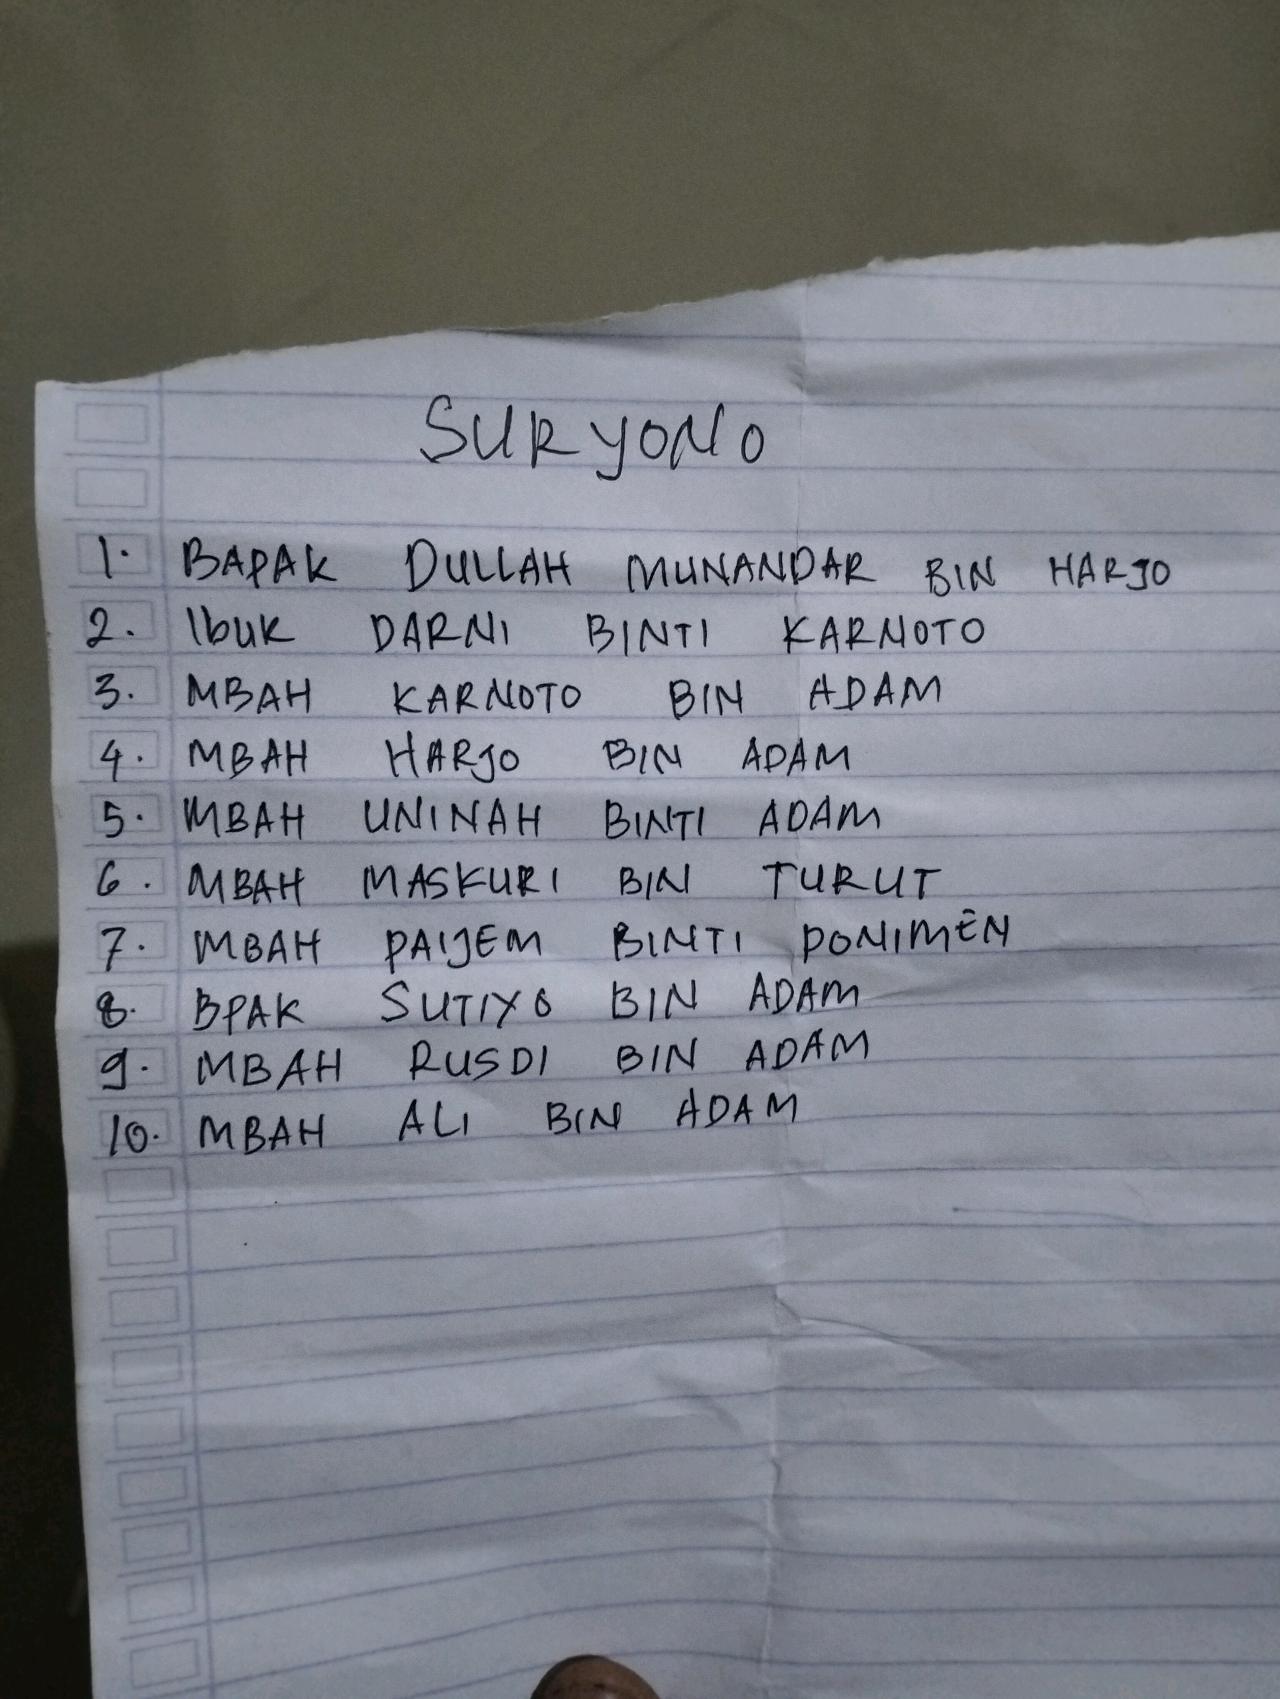 SURYONO
1. BAPAK DULLAH MUNANDAR BIN HARJO
2. IbuK DARNI BINTI KARNOTO
3. MBAH KARNOTO BIN ADAM
4. MBAH HARJO BIN ADAM
5. MBAH UNINAH BINTI ADAM
6. MBAH MASKURI BIN TURUT
7. MBAH PAIJEM BINTI PONIMĒN
8. BPAK SUTIYO BIN ADAM
9. MBAH RUSDI BIN ADAM
10. MBAH ALI BIN ADAM